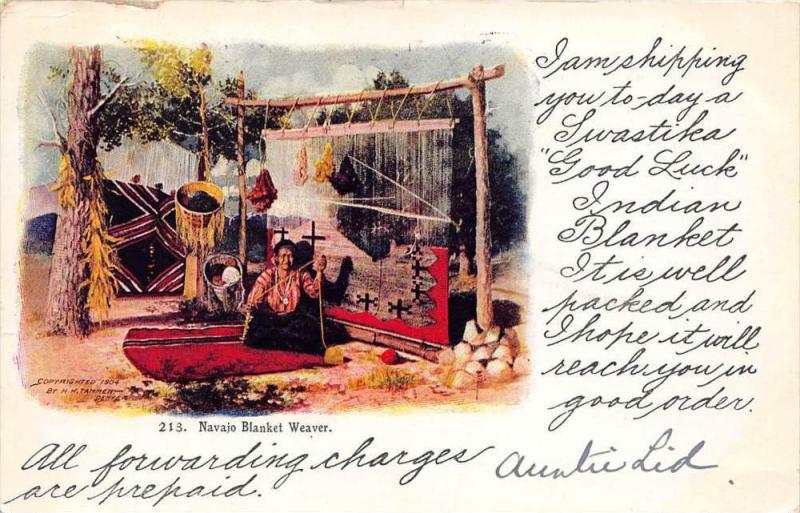 I am shipping
you to-day a
Swastika
"Good Luck"
Indian
Blanket
It is well
packed and
I hope it will
reach you in
good order.
COPYRIGHTED 1904
BY H. H. TAMMEN
213. Navajo Blanket Weaver.
All forwarding charges
are prepaid.
Auntie Lid